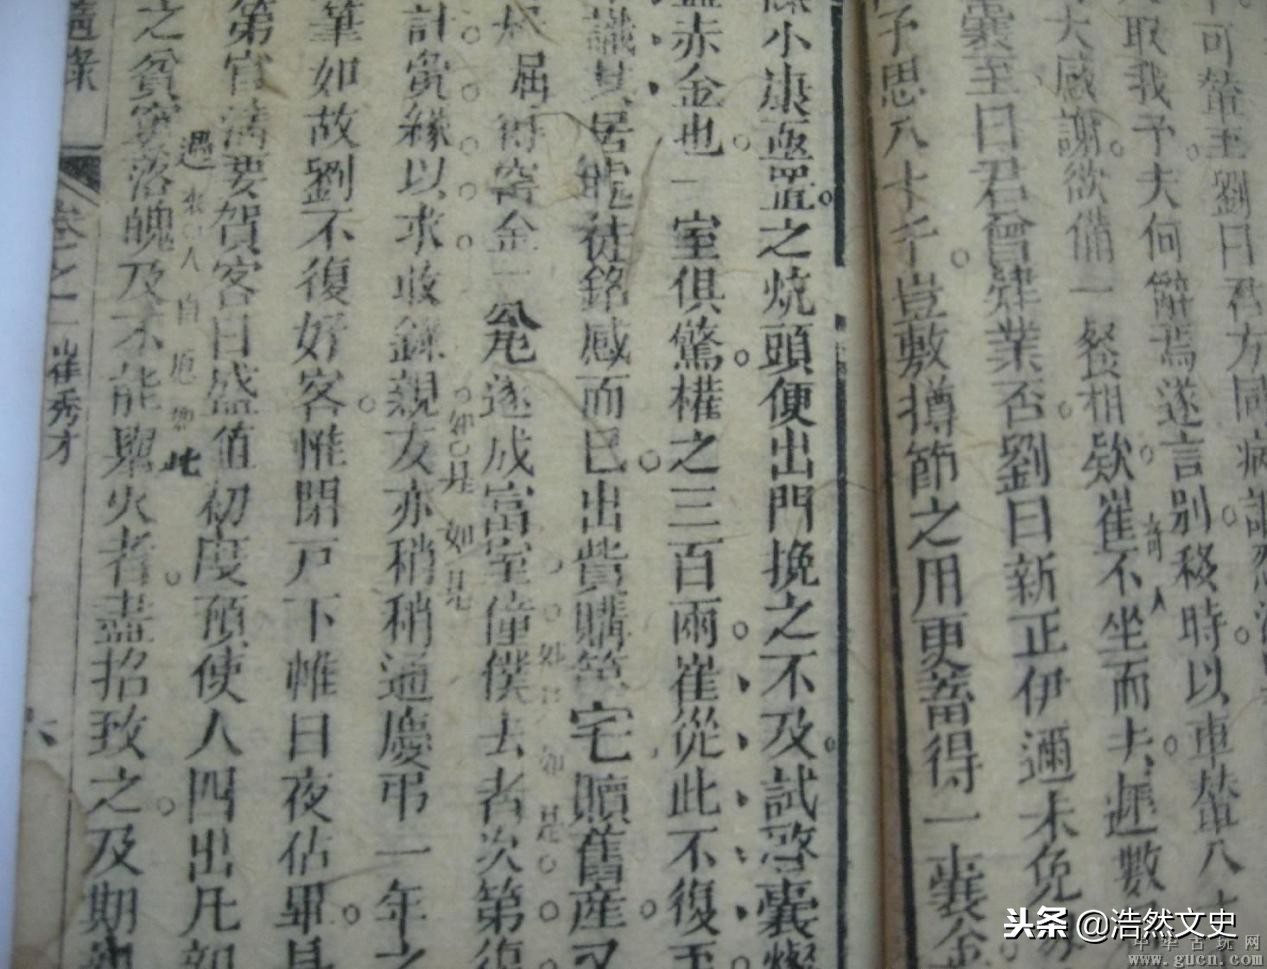 可輦至劉曰君方同病
取我予夫何辭焉遂言別移時以車輦八
大感謝欲備一餐相欵崔不坐而去遲數
囊至曰君曾肄業否劉曰新正伊邇未免
予思八十千豈敷撙節之用更蓄得一囊金
小康亟置之燒頭便出門挽之不及試啓囊燦
赤金也一室俱驚權之三百兩崔從此不復至
識其居能徒銘感而已出貲購第宅贖舊產又
屈得窖金一甕遂成富室僮僕去者次第復
計夤緣以求收錄親友亦稍稍通慶弔一年之
筆如故劉不復好客惟閉戶下帷日夜佔畢
第官清要賀客日盛值初度預使人四出凡
之貧窶落魄及不能舉火者盡招致之及期
奇人
如是如是
遇
此
卷之一 崔秀才
六
头条 @浩然文史
中华古玩网
www.gucn.com